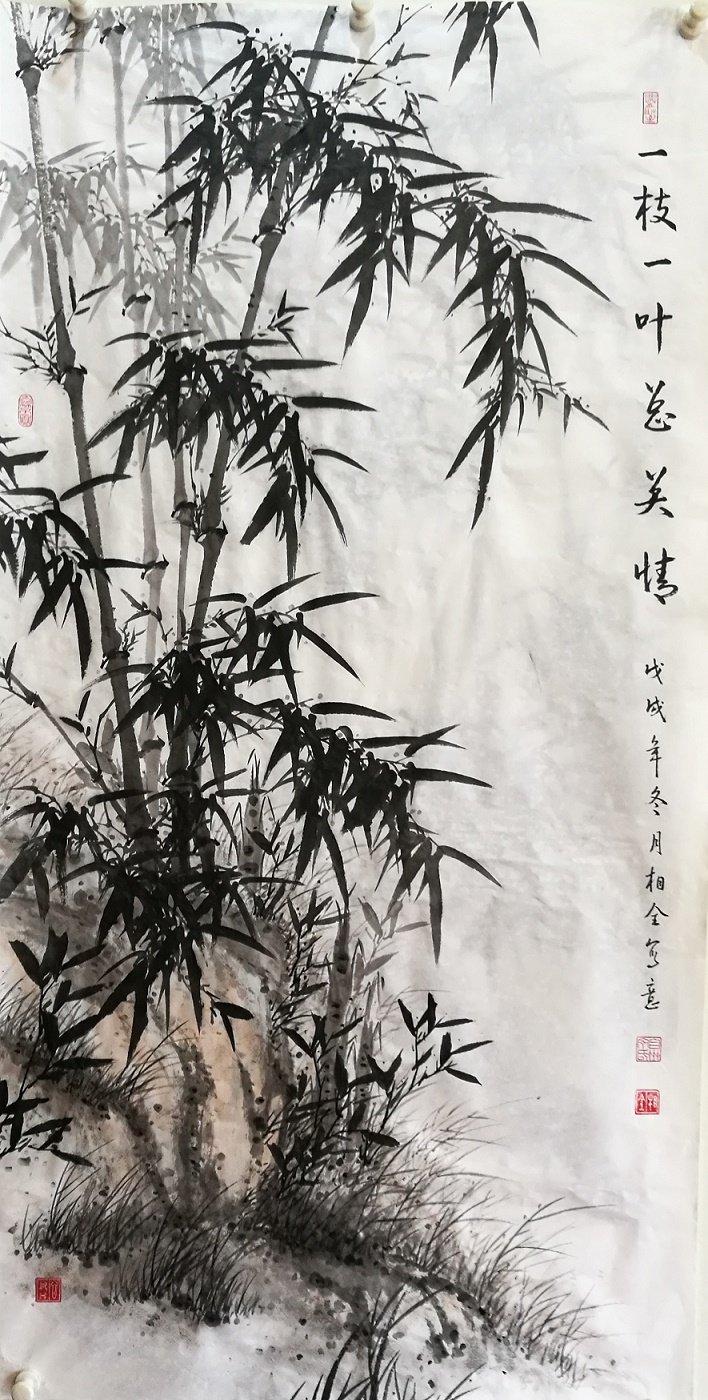 一枝一叶总关情
戊戌年冬月相全写意